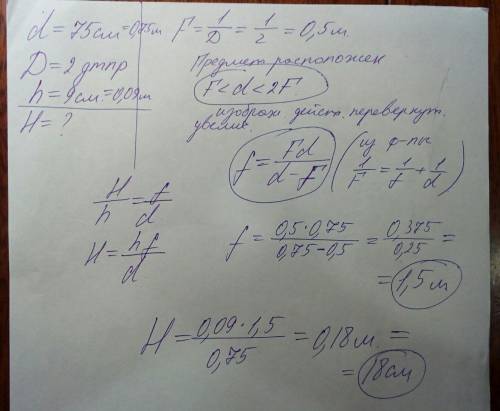 d = 75см = 0,75м
D = 2 дтпр
h = 9см = 0,09м
H = ?
F = 1/D = 1/2 = 0,5 м.
Предмет расположен
F < d < 2F
изображ действ. перевернут.
увелич.
f = Fd/(d-F) (из ф-лы 1/F = 1/f + 1/d)
H/h = f/d
H = hf/d
f = 0,5·0,75/(0,75-0,5) = 0,375/0,25 =
= 1,5 м
H = 0,09·1,5/0,75 = 0,18 м. =
= 18 см